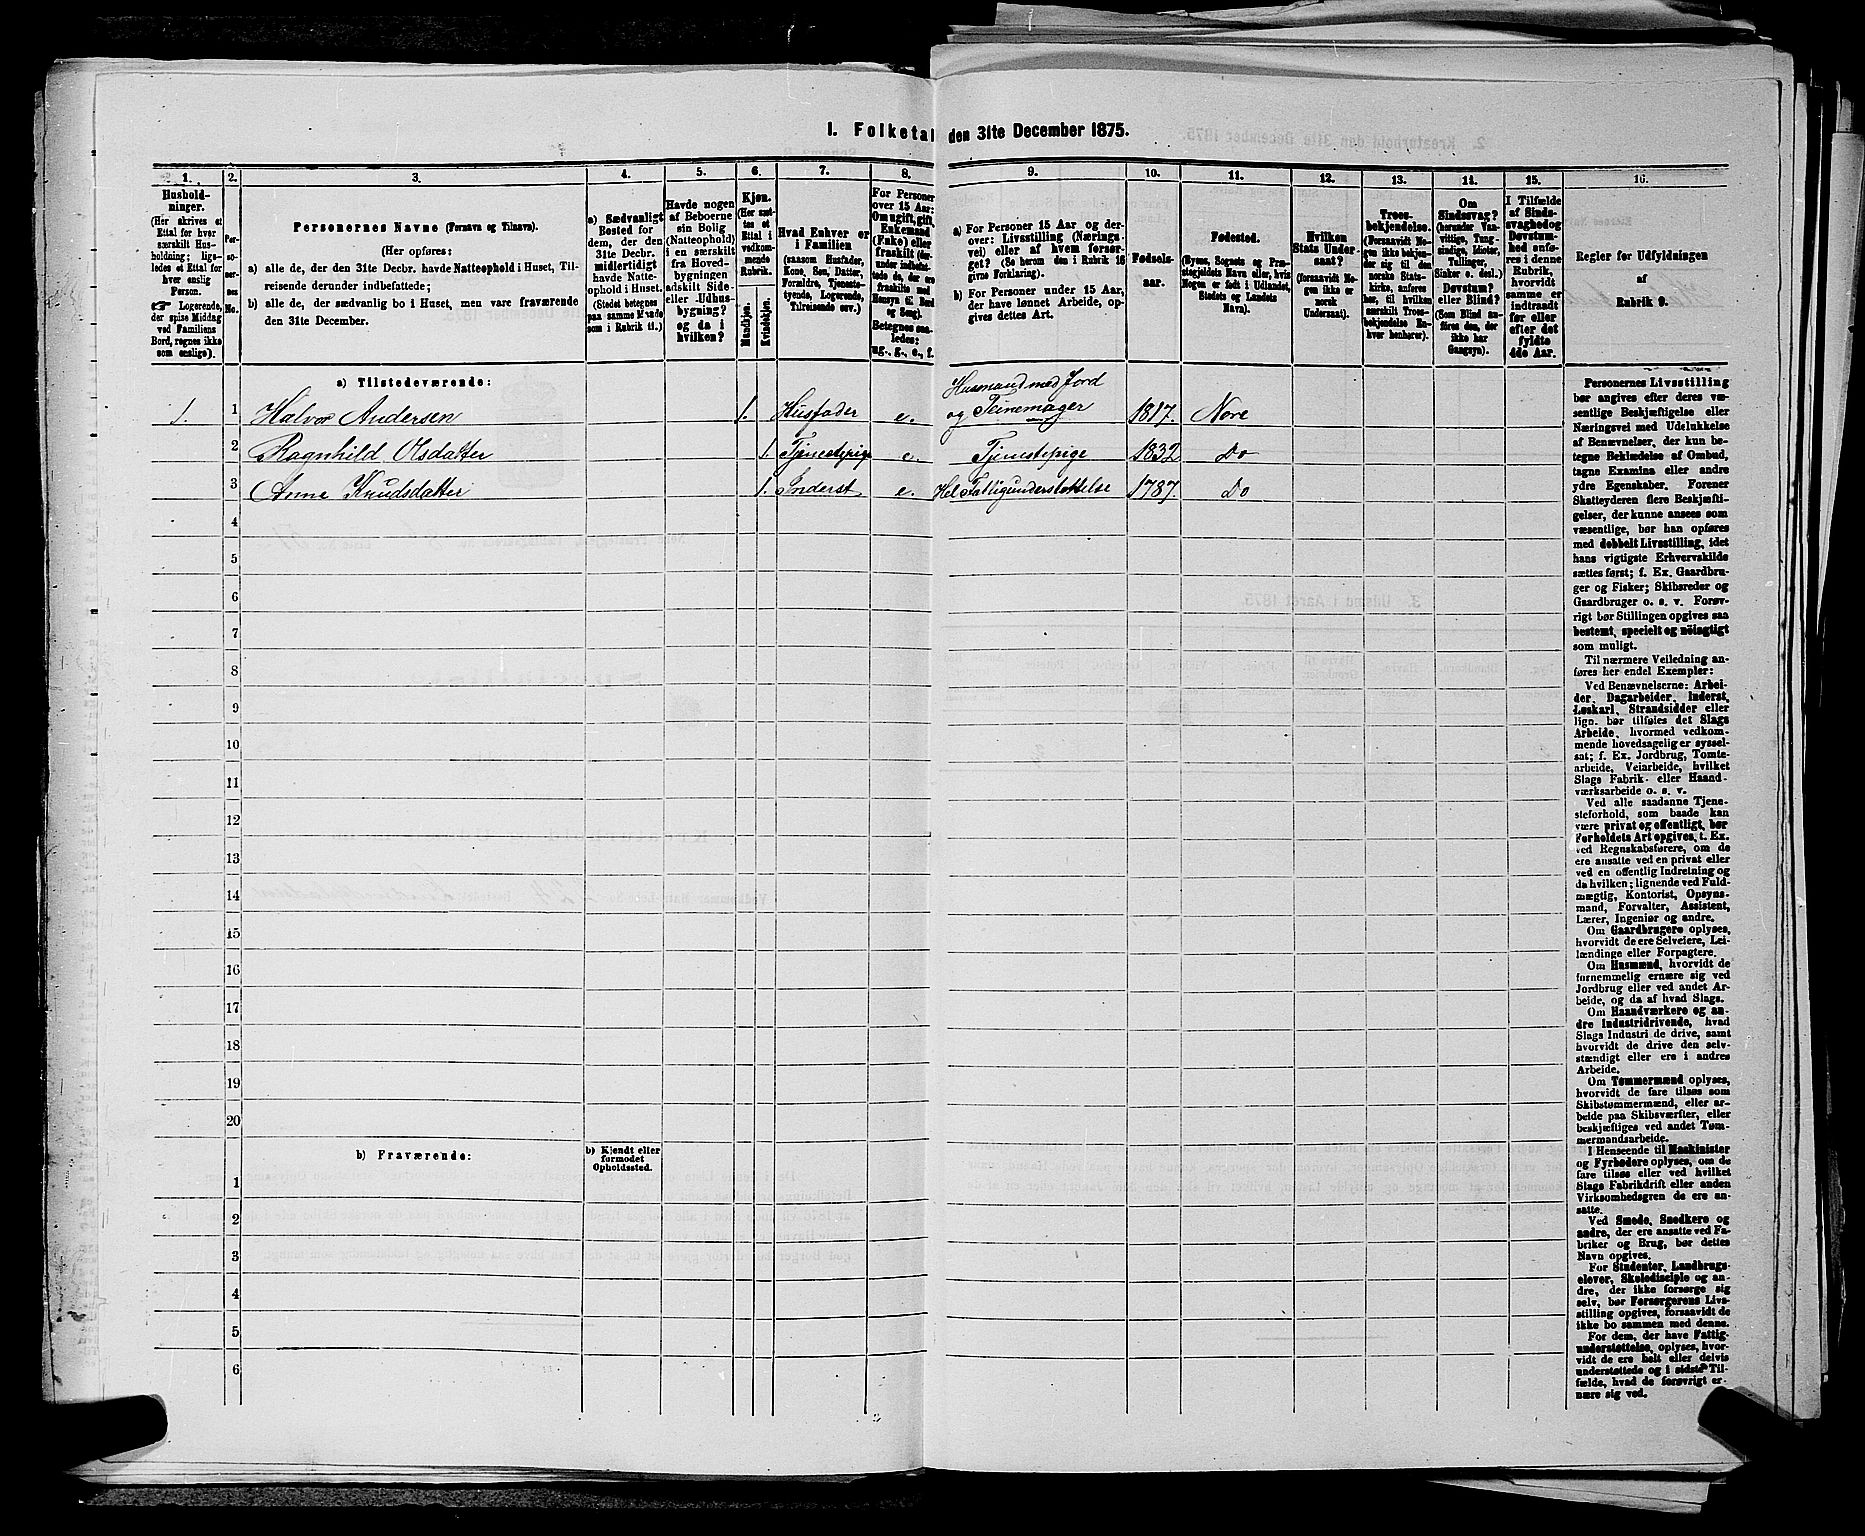 I. Folketal den 31te December 1875.
1.
Hushold-
ninger.
(Her skrives et
Ettal for hver
særskilt Hus-
holdning; lige-
ledes et Ettal for
hver enslig
Person.
☞ Logerende,
der spise Middag
ved Familiens
Bord, regnes ikke
som enslige).
2.
Per-
so-
ner-
nes
No.
3.
Personernes Navne (Fornavn og Tilnavn).
(Her opføres:
a) alle de, der den 31te Decbr. havde Natteophold i Huset, Til-
reisende derunder indbefattede;
b) alle de, der sædvanlig bo i Huset, men vare fraværende
den 31te December.
4.
a) Sædvanligt
Bosted for
dem, der den
31te Decbr.
midlertidigt
havde Natte-
ophold i Huset.
(Stedet betegnes
paa samme Maade
som i Rubrik 11.)
5.
Havde nogen
af Beboerne
sin Bolig
(Natteophold)
i en særskilt
fra Hoved-
bygningen
adskilt Side-
eller Udhus-
bygning?
og da i
hvilken?
6.
Kjøn.
(Her sæt-
tes et
Ettal i
vedkom-
mende
Rubrik.
Mandkjøn.
Kvindekjøn.
7.
Hvad Enhver er
i Familien
(saasom Husfader,
Kone, Søn, Datter,
Forældre, Tjeneste-
tyende, Logerende,
Tilreisende osv.)
8.
For Personer
over 15 Aar:
Om ugift, gift,
Enkemand
(Enke) eller
fraskilt (der-
under indbefat-
tede de, der ere
fraskilte med
Hensyn til Bord
og Seng).
Betegnes saa-
ledes:
ug., g., e., f.
9.
a) For Personer 15 Aar og der-
over: Livsstilling (Nærings
vei) eller af hvem forsør-
get? (Se herom den i Rubrik 16
givne Forklaring).
b) For Personer under 15 Aar,
der have lønnet Arbeide, op-
gives dettes Art.
10.
Fødsels-
aar.
11.
Fødested.
(Byens, Sognets og Præ-
stegjeldets Navn eller, hvis
Nogen er født i Udlandet,
Stedets og Landets
Navn).
12.
Hvilken
Stats Under-
saat?
(forsaavidt No-
gen ikke er
norsk
Undersaat).
13.
Troes-
bekjendelse.
(Forsaavidt No-
gen ikke beken-
der sig til den
norske Stats-
kirke, anføres
her, til hvilken
særskilt Troes-
bekjendelse En-
hver henhører).
14.
Om
Sindssvag?
(herunder Van-
vittige, Tung-
sindige, Idioter,
Tullinger,
Sinker o. desl.)
Døvstum?
eller Blind?
(Som Blind an-
føres den, der
ikke har
Gangsyn).
15.
I Tilfælde
af Sinds-
svaghed og
Døvstum-
hed anfø-
res i denne
Rubrik,
hvorvidt
samme er
indtraadt
før eller
efter det
fyldte
4de Aar.
16.
Regler for Udfyldningen
af
Rubrik 9.
a) Tilstedeværende:
1. 1 Halvor Andersen 1. Husfader e. Husmand med Jord
og Teinemager 1817. Nore
2 Ragnhild Olsdatter 1. Tjenestepige e. Tjenestepige 1832 Do
3 Anne Knudsdatter 1. Inderst e. Hel Fattigunderstøttelse 1787. Do
4
5
6
7
8
9
10
11
12
13
14
15
16
17
18
19
20
b) Fraværende:
b) Kjendt eller
formodet
Opholdssted.
1
2
3
4
5
6
Personernes Livsstilling
bør angives efter deres væ-
sentlige Beskjæftigelse eller
Næringsvei med Udelukkelse
af Benævnelser, der kun be-
tegne Beklædelse af Ombud,
tagne Examina eller andre
ydre Egenskaber. Forener
Skatteyderen flere Beskjæfti-
gelser, der kunne ansees som
væsentlige, bør han opføres
med dobbelt Livsstilling, idet
hans vigtigste Erhvervskilde
sættes først; f. Ex. Gaardbru-
ger og Fisker; Skibsreder og
Gaardbruger o. s. v. Forøv-
rigt bør Stillingen opgives saa
bestemt, specielt og nöiagtigt
som muligt.
Til nærmere Veiledning an-
føres her endel Exempler:
Ved Benævnelserne: Arbei-
der, Dagarbeider, Inderst,
Løskarl, Strandsidder eller
lign. bør tilføies det Slags
Arbeide, hvormed vedkom-
mende hovedsagelig er syssel-
sat; f. Ex. Jordbrug, Tomte-
arbeide, Veiarbeide, hvilket
Slags Fabrik- eller Haand-
værksarbeide o. s. v.
Ved alle saadanne Tjene-
steforhold, som baade kan
være privat og offentligt, bør
Forholdets Art opgives, t. Ex.
ved Regnskabsførere, om de
ere ansatte ved en privat eller
ved en offentlig Indretning og
da hvilken; lignende ved Fuld-
mægtig, Kontorist, Opsyns-
mand, Forvalter, Assistent,
Lærer, Ingeniør og andre.
Om Gaardbrugere oplyses,
hvorvidt de ere Selveiere, Lei-
lændinge eller Forpagtere.
Om Husmænd, hvorvidt de
fornemmelig ernære sig ved
Jordbrug eller ved andet Ar-
beide, og da af hvad Slags.
Om Haandværkere og an-
dre Industridrivende, hvad
Slags Industri de drive, samt
hvorvidt de drive den selv-
stændigt eller ere i andres
Arbeide.
Om Tømmermænd oplyses,
hvorvidt de fare tilsøs som
Skibstømmermænd, eller ar-
beide paa Skibsværfter, eller
beskjæftiges ved andet Tøm-
mermandsarbeide.
I Henseende til Maskinister
og Fyrbødere oplyses, om de
fare tilsøs eller ved hvilket
Slags Fabrikdrift eller anden
Virksomhedsgren de ere an-
satte.
Ved Smede, Snedkere og
andre, der ere ansatte ved Fa-
briker og Brug, bør dettes
Navn opgives.
For Studenter, Landbrugs-
elever, Skoledisciple og an-
dre, der ikke forsørge sig
selv, bør Forsørgerens Livs-
stilling opgives, forsaavidt de
ikke bo sammen med denne.
For dem, der have Fattig-
understøttelse, oplyses, hvor-
vidt de ere helt eller delvis
understøttede og i sidste Til-
fælde, hvad de forøvrigt er-
nære sig ved.